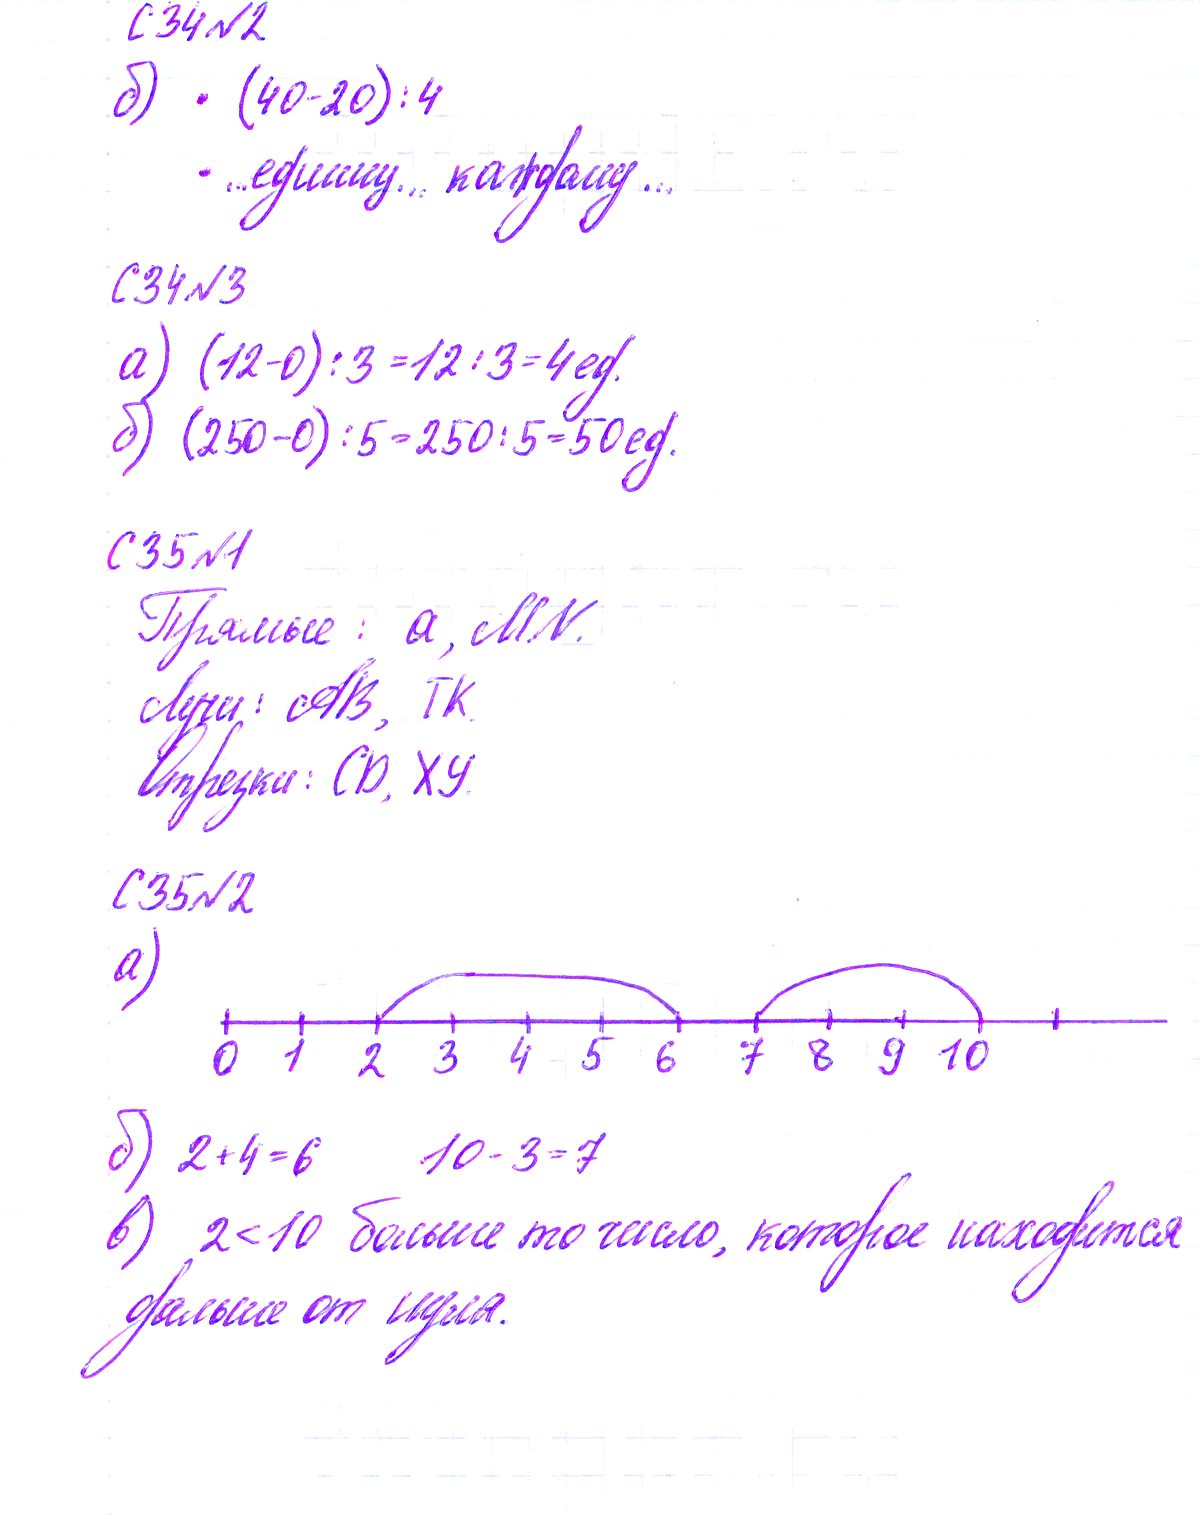 С34№2
б) • (40-20):4
• ...единицу... каждому...
С34№3
а) (12-0):3=12:3=4ед.
б) (250-0):5=250:5=50ед.
С35№1
Прямые: а, MN.
Лучи: АВ, ТК.
Отрезки: CD, ХУ.
С35№2
а)
0 1 2 3 4 5 6 7 8 9 10
б) 2+4=6 10-3=7
в) 2<10 больше то число, которое находится
дальше от нуля.